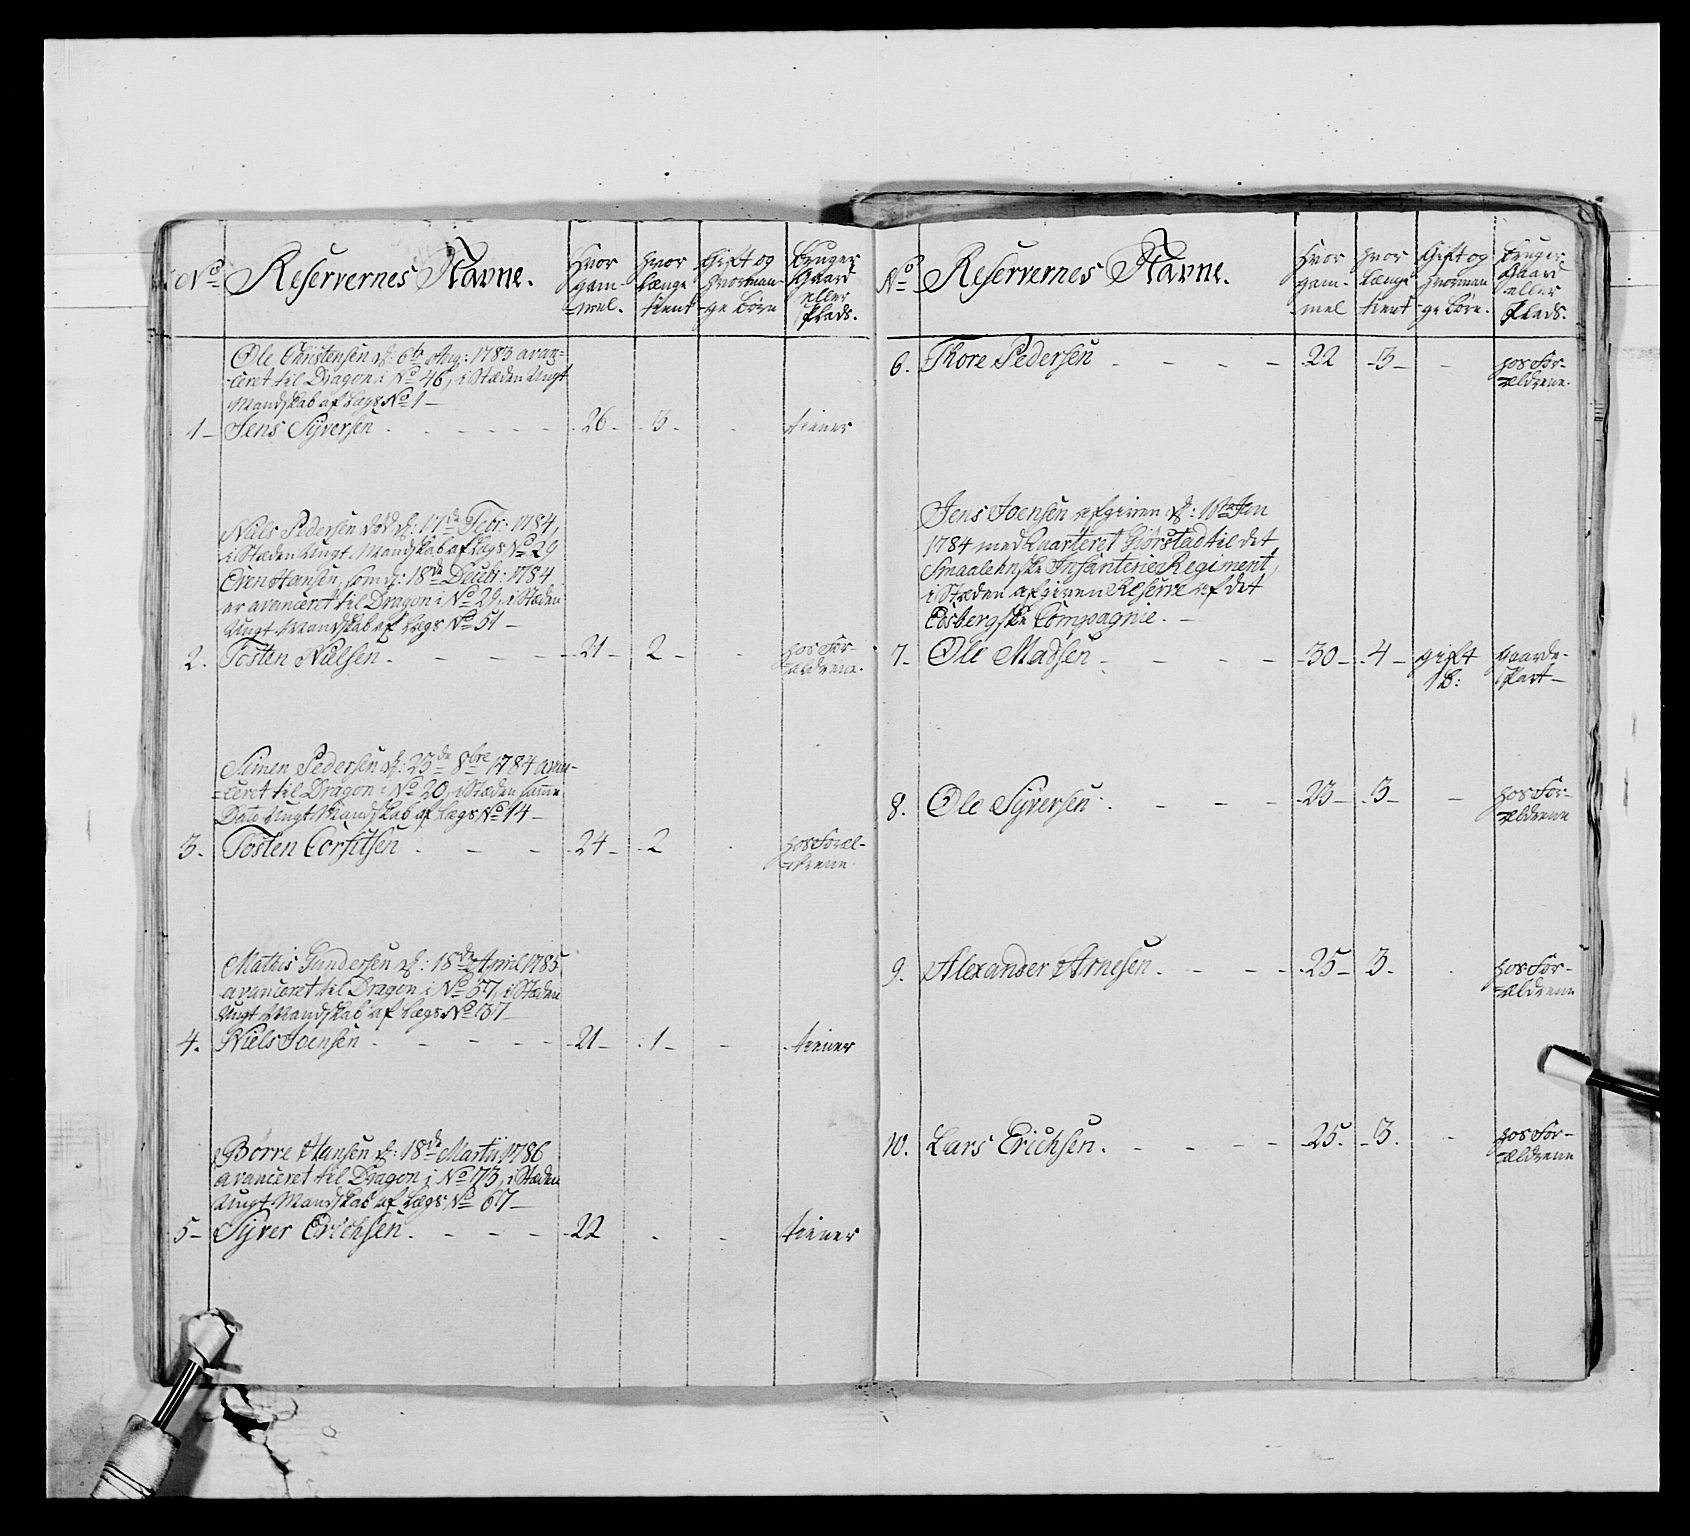 No Reservernes Navne. Hvor gam-mel. hvor længe tient Gift og hvorman-ge Børn Bruger Gaard eller Plads.
Ole Christensen d: 6te Aug: 1783 avan-
ceret til Dragon i No 46, i Stæden Ungt
Mandskab af Lægs No 1 —
1 — Jens Syversen - - - - - 26 - 3 - - tiener
Niels Pedersen død d: 17de Febr: 1784,
i Stæden Ungt Mandskab af Lægs No 29
Even Hansen, som d: 18de Decbr: 1784
er avanceret til Dragon i No 29, i Stæden
Ungt Mandskab af Lægs No 51 —
2. Tosten Nielsen - - - - 21 - 2 - - hos For-
ældrene.
Simen Pedersen d: 23de 8bre 1784 avan-
ceret til Dragon i No 20, i Stæden samme
Dato Ungt Mandskab af Lægs No 14 —
3. Tosten Corfitsen - - - 24 - 2 - hos Foræl-
drene.
Mathis Gundersen d: 18de April 1785
avanceret til Dragon i No 57, i Stæden
Ungt Mandskab af Lægs No 37 —
4. Niels Joensen - - - - - 21 - 1 - - tiener
Børre Hansen d: 18de Martii 1786
avanceret til Dragon i No 73, i Stæden
Ungt Mandskab af Lægs No 67 —
5 — Syver Erichsen. - - - - 22 - - tiener
No Reservernes Navne. Hvor gam-mel hvor længe tient Gift og hvorman-ge Børn. Bruger Gaard eller Plads.
6. Thore Pedersen - - - - 22 - 3 - - hos For-
ældrene.
Jens Joensen afgiven d: 1ste Jan
1784 med Quarteret Giørstad til det
Smaalehnske Infanterie Regiment,
i Stæden afgiven Reserve af det
Edsbergske Compagnie. —
7 - Ole Madsen - - - - 30 - 4 - gift Gaarde-
1 B: Part —
8. Ole Syversen - - - - 23 - 3 - - hos For-
ældrene
9. Alexander Arnesen. - - - 25 - 3 - hos For-
ældrene
10. Lars Erichsen. - - - - 25 - 3 - hos For-
ældrene